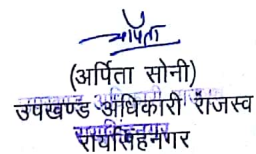 अर्पिता
(अर्पिता सोनी)
उपखण्ड अधिकारी राजस्व
रायसिंहनगर